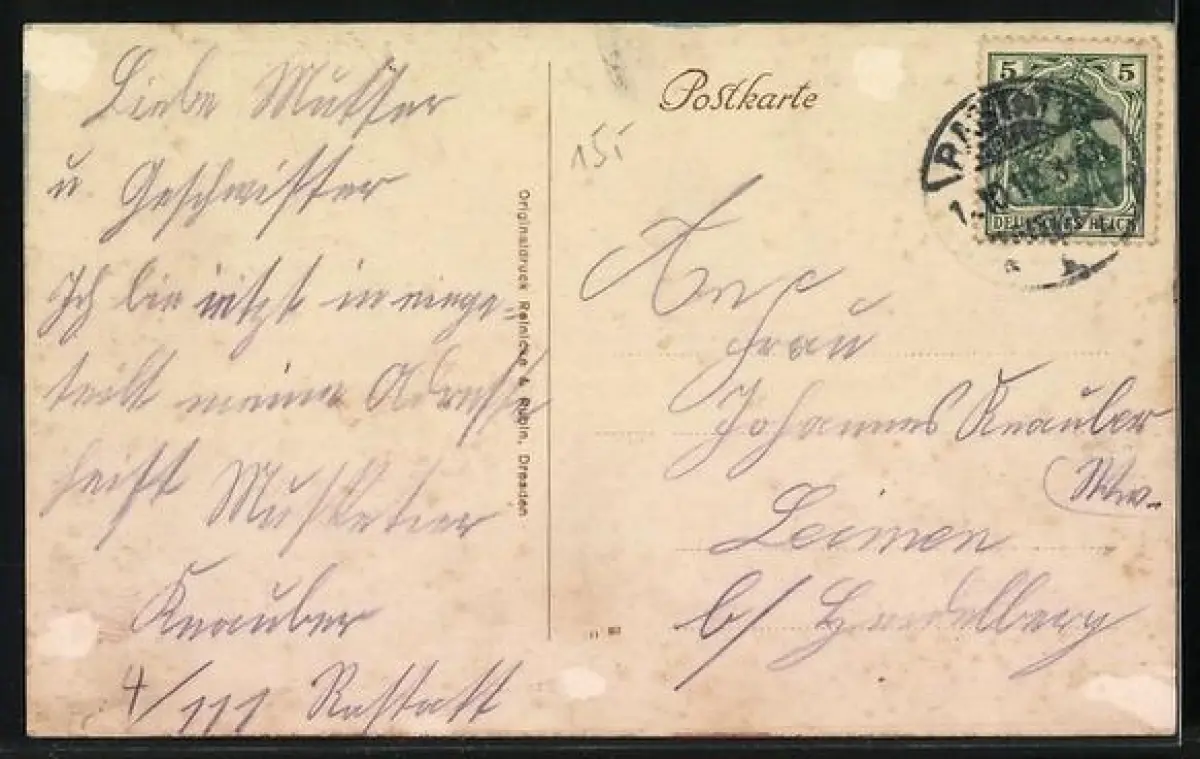 Liebe Mutter
u Geschwister
Ich bin jetzt in einge=
teilt meine Adresse
heist Musketier
Knauber
4/111 Rastatt
Originaldruck Reinicke & Rubin, Dresden
Postkarte
151
5 5
DEUTSCHES REICH
RASTATT
An
Frau
Johannes Knauber
Ww.
Leimen
b/ Heidelberg